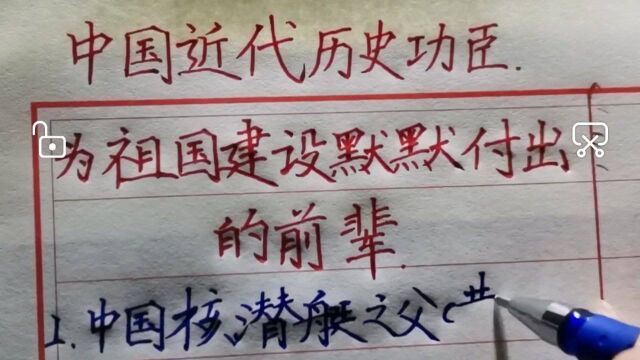 中国近代历史功臣.
为祖国建设默默付出
的前辈.
1.中国核潜艇之父